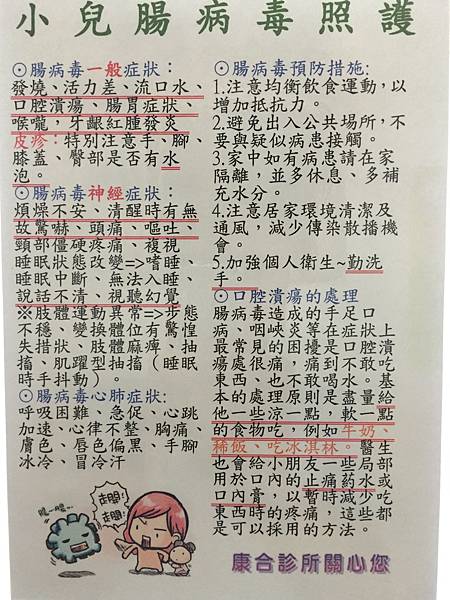 小兒腸病毒照護
⊙腸病毒一般症狀：
發燒、活力差、流口水、
口腔潰瘍、腸胃症狀、
喉嚨，牙齦紅腫發炎
皮疹：特別注意手、腳、
膝蓋、臀部是否有水
泡。
⊙腸病毒神經症狀：
煩燥不安、清醒時有無
故驚嚇、頭痛、嘔吐、
頸部僵硬疼痛、複視
睡眠狀態改變=>嗜睡、
睡眠中斷、無法入睡、
說話不清、視聽幻覺
※肢體運動異常=>步態
不穩、變換體位有驚惶
失措狀、肢體麻痺、抽
搐、肌躍型抽搐（睡眠
時手抖動）。
⊙腸病毒心肺症狀：
呼吸困難、急促、心跳
加速、心律不整、胸痛、
膚色、唇色偏黑、手腳
冰冷、冒冷汗
⊙腸病毒預防措施：
1.注意均衡飲食運動，以
增加抵抗力。
2.避免出入公共場所，不
要與疑似病患接觸。
3.家中如有病患請在家
隔離，並多休息、多補
充水分。
4.注意居家環境清潔及
通風，減少傳染散播機
會。
5.加強個人衛生~勤洗
手。
⊙口腔潰瘍的處理
腸病毒造成的手足口
病、咽峽炎等在症狀上
最常見的困擾是口腔潰
瘍處很痛，痛到不敢吃
東西、也不敢喝水。基
本的處理原則是盡量給
他一些涼一點，軟一點
的食物吃，例如牛奶、
稀飯、吃冰淇林。醫生
也會給小朋友一些局部
用於口內的止痛藥水或
口內膏，以暫時減少吃
東西時的疼痛，這些都
是可以採用的方法。
走開!
走開!
康合診所關心您